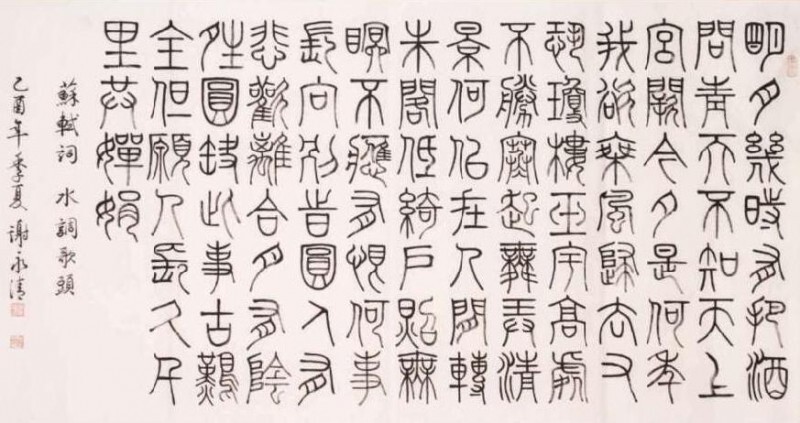 明月幾時有把酒
問青天不知天上
宮闕今夕是何年
我欲乘風歸去又
恐瓊樓玉宇高處
不勝寒起舞弄清
景何似在人間轉
朱閣低綺戶照無
眠不應有恨何事
長向別旹圓人有
悲歡離合月有陰
夝圓缺此事古難
全但願人長久千
里共嬋娟
蘇軾詞 水調歌頭
乙酉年季夏 謝永清